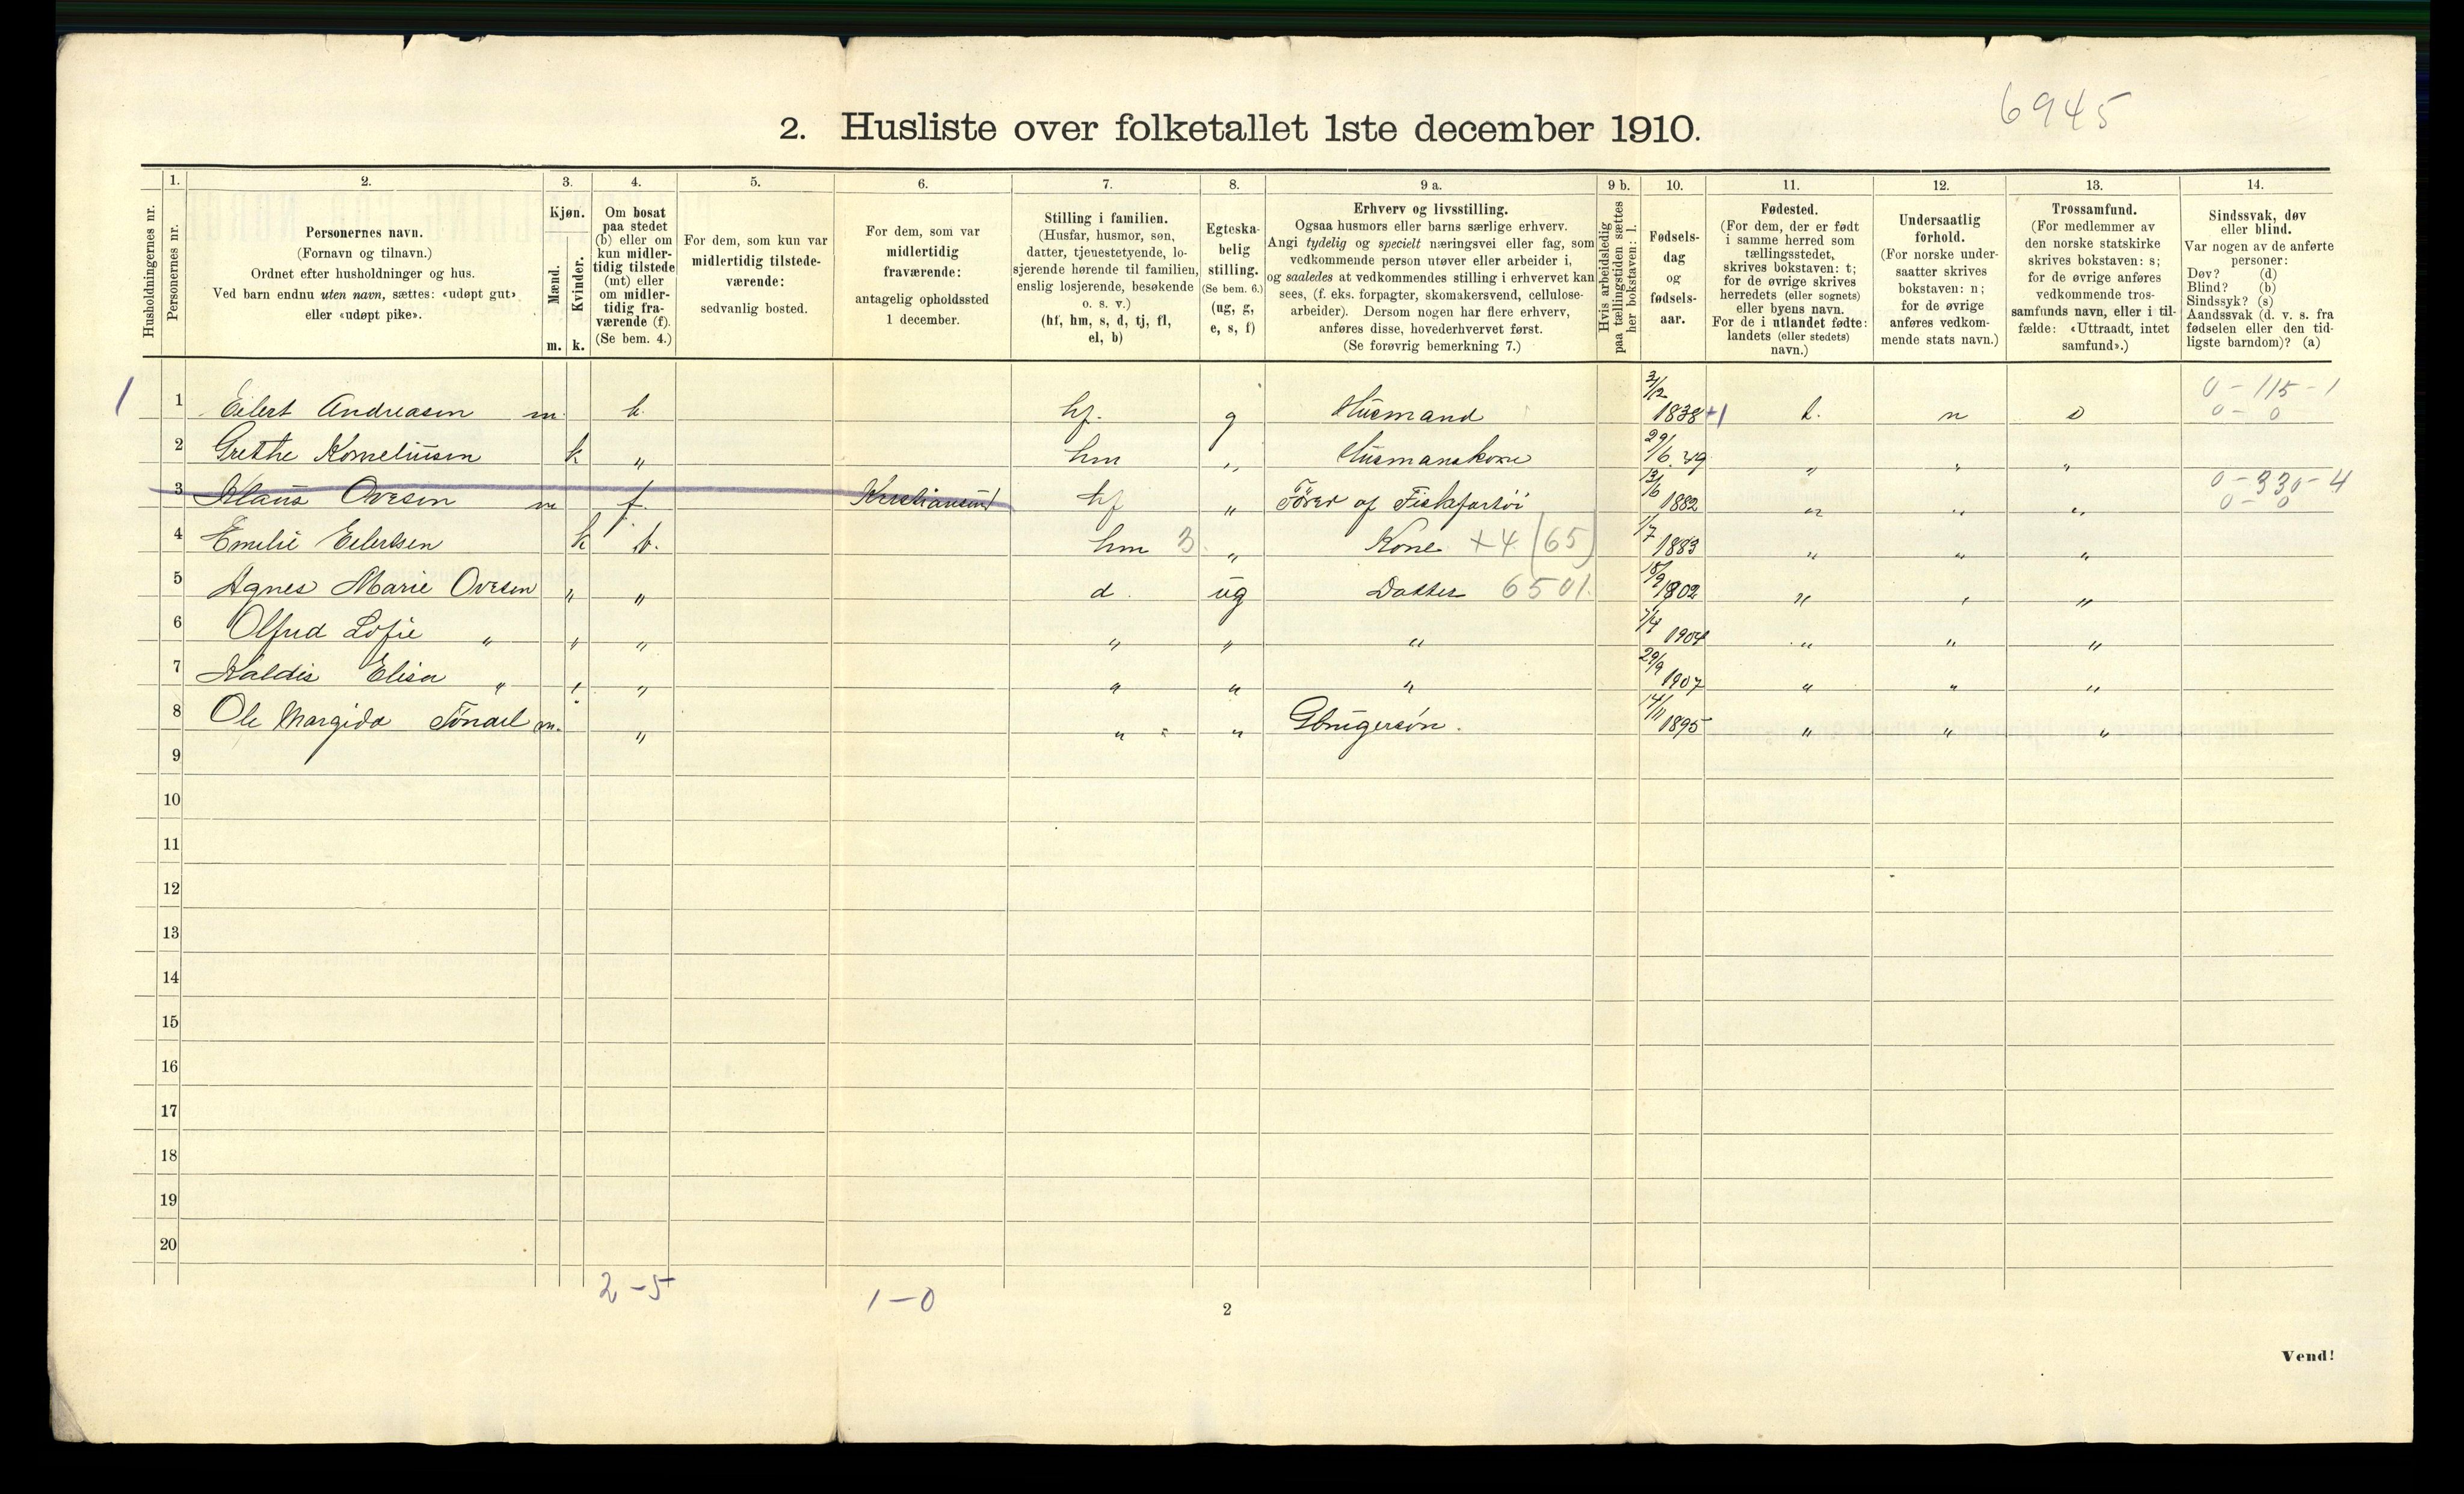 6945
2. Husliste over folketallet 1ste december 1910.
Husholdningernes nr.
1.
Personernes nr.
2.
Personernes navn.
(Fornavn og tilnavn.)
Ordnet efter husholdninger og hus.
Ved barn endnu uten navn, sættes: «udøpt gut»
eller «udøpt pike».
3.
Kjøn.
Mænd.
Kvinder.
m. k.
4.
Om bosat
paa stedet
(b) eller om
kun midler-
tidig tilstede
(mt) eller
om midler-
tidig fra-
værende (f).
(Se bem. 4.)
5.
For dem, som kun var
midlertidig tilstede-
værende:
sedvanlig bosted.
6.
For dem, som var
midlertidig
fraværende:
antagelig opholdssted
1 december.
7.
Stilling i familien.
(Husfar, husmor, søn,
datter, tjenestetyende, lo-
sjerende hørende til familien,
enslig losjerende, besøkende
o. s. v.)
(hf, hm, s, d, tj, fl,
el, b)
8.
Egteska-
belig
stilling.
(Se bem. 6.)
(ug, g,
e, s, f)
9 a.
Erhverv og livsstilling.
Ogsaa husmors eller barns særlige erhverv.
Angi tydelig og specielt næringsvei eller fag, som
vedkommende person utøver eller arbeider i,
og saaledes at vedkommendes stilling i erhvervet kan
sees, (f. eks. forpagter, skomakersvend, cellulose-
arbeider). Dersom nogen har flere erhverv,
anføres disse, hovederhvervet først.
(Se forøvrig bemerkning 7.)
9 b.
Hvis arbeidsledig
paa tællingstiden sættes
her bokstaven: l.
10.
Fødsels-
dag
og
fødsels-
aar.
11.
Fødested.
(For dem, der er født
i samme herred som
tællingsstedet,
skrives bokstaven: t;
for de øvrige skrives
herredets (eller sognets)
eller byens navn.
For de i utlandet fødte:
landets (eller stedets)
navn.)
12.
Undersaatlig
forhold.
(For norske under-
saatter skrives
bokstaven: n;
for de øvrige
anføres vedkom-
mende stats navn.)
13.
Trossamfund.
(For medlemmer av
den norske statskirke
skrives bokstaven: s;
for de øvrige anføres
vedkommende tros-
samfunds navn, eller i til-
fælde: «Uttraadt, intet
samfund».)
14.
Sindssvak, døv
eller blind.
Var nogen av de anførte
personer:
Døv? (d)
Blind? (b)
Sindssyk? (s)
Aandssvak (d. v. s. fra
fødselen eller den tid-
ligste barndom)? (a)
1 1 Eilert Andreasen m. b. hf. g Husmand 1838 +1 t. n s 0 - 115 - 1
0 - 0
2 Grethe Korneliusen k " hm " Husmanskone 29/6.49 " " "
3 Klaus Ovesen m f. Kristiansund hf " Fører af Fiskefartöi 13/6 1882 " " " 0 - 330 - 4
0 - 0
4 Emelie Eilertsen k b. hm 3 " Kone +4 (65) 1/7 1883 " " "
5 Agnes Marie Ovesen " " d. ug Datter 6501. 15/9 1802 " " "
6 Olfrid Lofie " " " " " " 7/4 1904 " " "
7 Haldis Elisa " " " " " " 29/9 1907 " " "
8 Ole Margido m. " " " Gbrugersön. 14/11 1895 " " "
9
10
11
12
13
14
15
16
17
18
19
20
2 - 5
1 - 0
2
Vend!